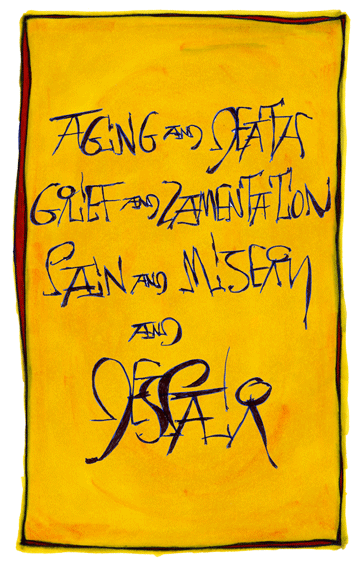 AGING AND DEATH
GRIEF AND LAMENTATION
PAIN AND MISERY
AND
DESPAIR